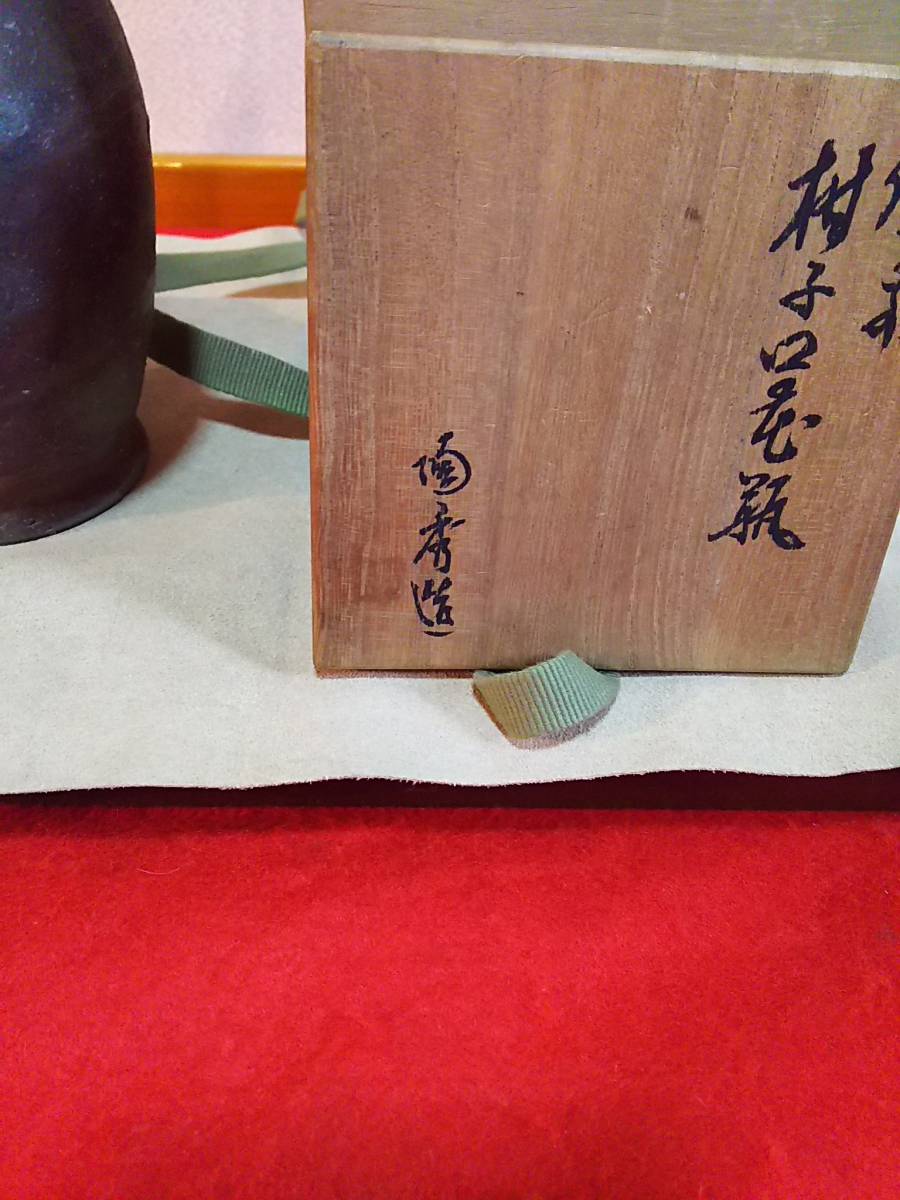 柑子口花瓶
陶秀造